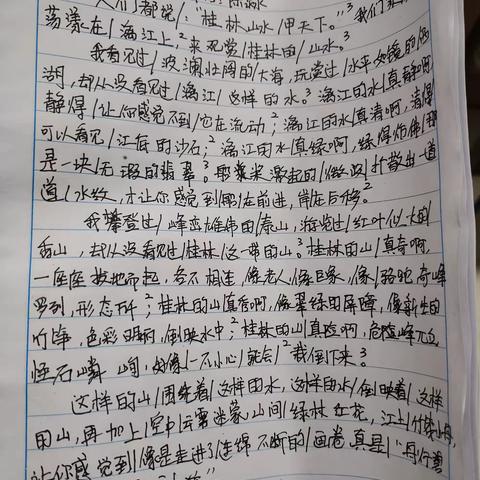 人们都说:"桂林山水/甲天下。"³我们
荡漾在/漓江上,²来观赏/桂林的/山水。³
我看见过/波澜壮阔的大海,玩赏过/水平如镜的西
湖,却从没看见过/漓江/这样的水。³漓江的水/真静啊,
静得/让你感觉不到/它在流动;²漓江的水/真清啊,清得
可以看见/江底的沙石;²漓江的水/真绿啊,绿得仿佛/那
是一块/无瑕的翡翠。³船桨激起的/微波/扩散出一道
道/水纹,才让你感觉到/船在前进,岸在后移。²
我攀登过/峰峦雄伟的/泰山,游览过/红叶似火的
香山,却从没看见过/桂林/这一带的山。³桂林的山/真奇啊,
一座座拔地而起,各不相连,像老人,像巨象,像/骆驼奇峰
罗列,形态万千;²桂林的山/真秀啊,像翠绿的屏障,像新生的
竹笋,色彩明丽,倒映水中;²桂林的山/真险啊,危峰兀立,
怪石嶙峋,好像/一不小心/就会/²栽倒下来。³
这样的山/围绕着/这样的水,这样的水/倒映着/这样
的山,再加上/空中/云雾迷蒙,山间/绿林红花,江上/竹筏小舟,
让你感觉到/像是走进了/连绵不断的/画卷,真是/"舟行碧